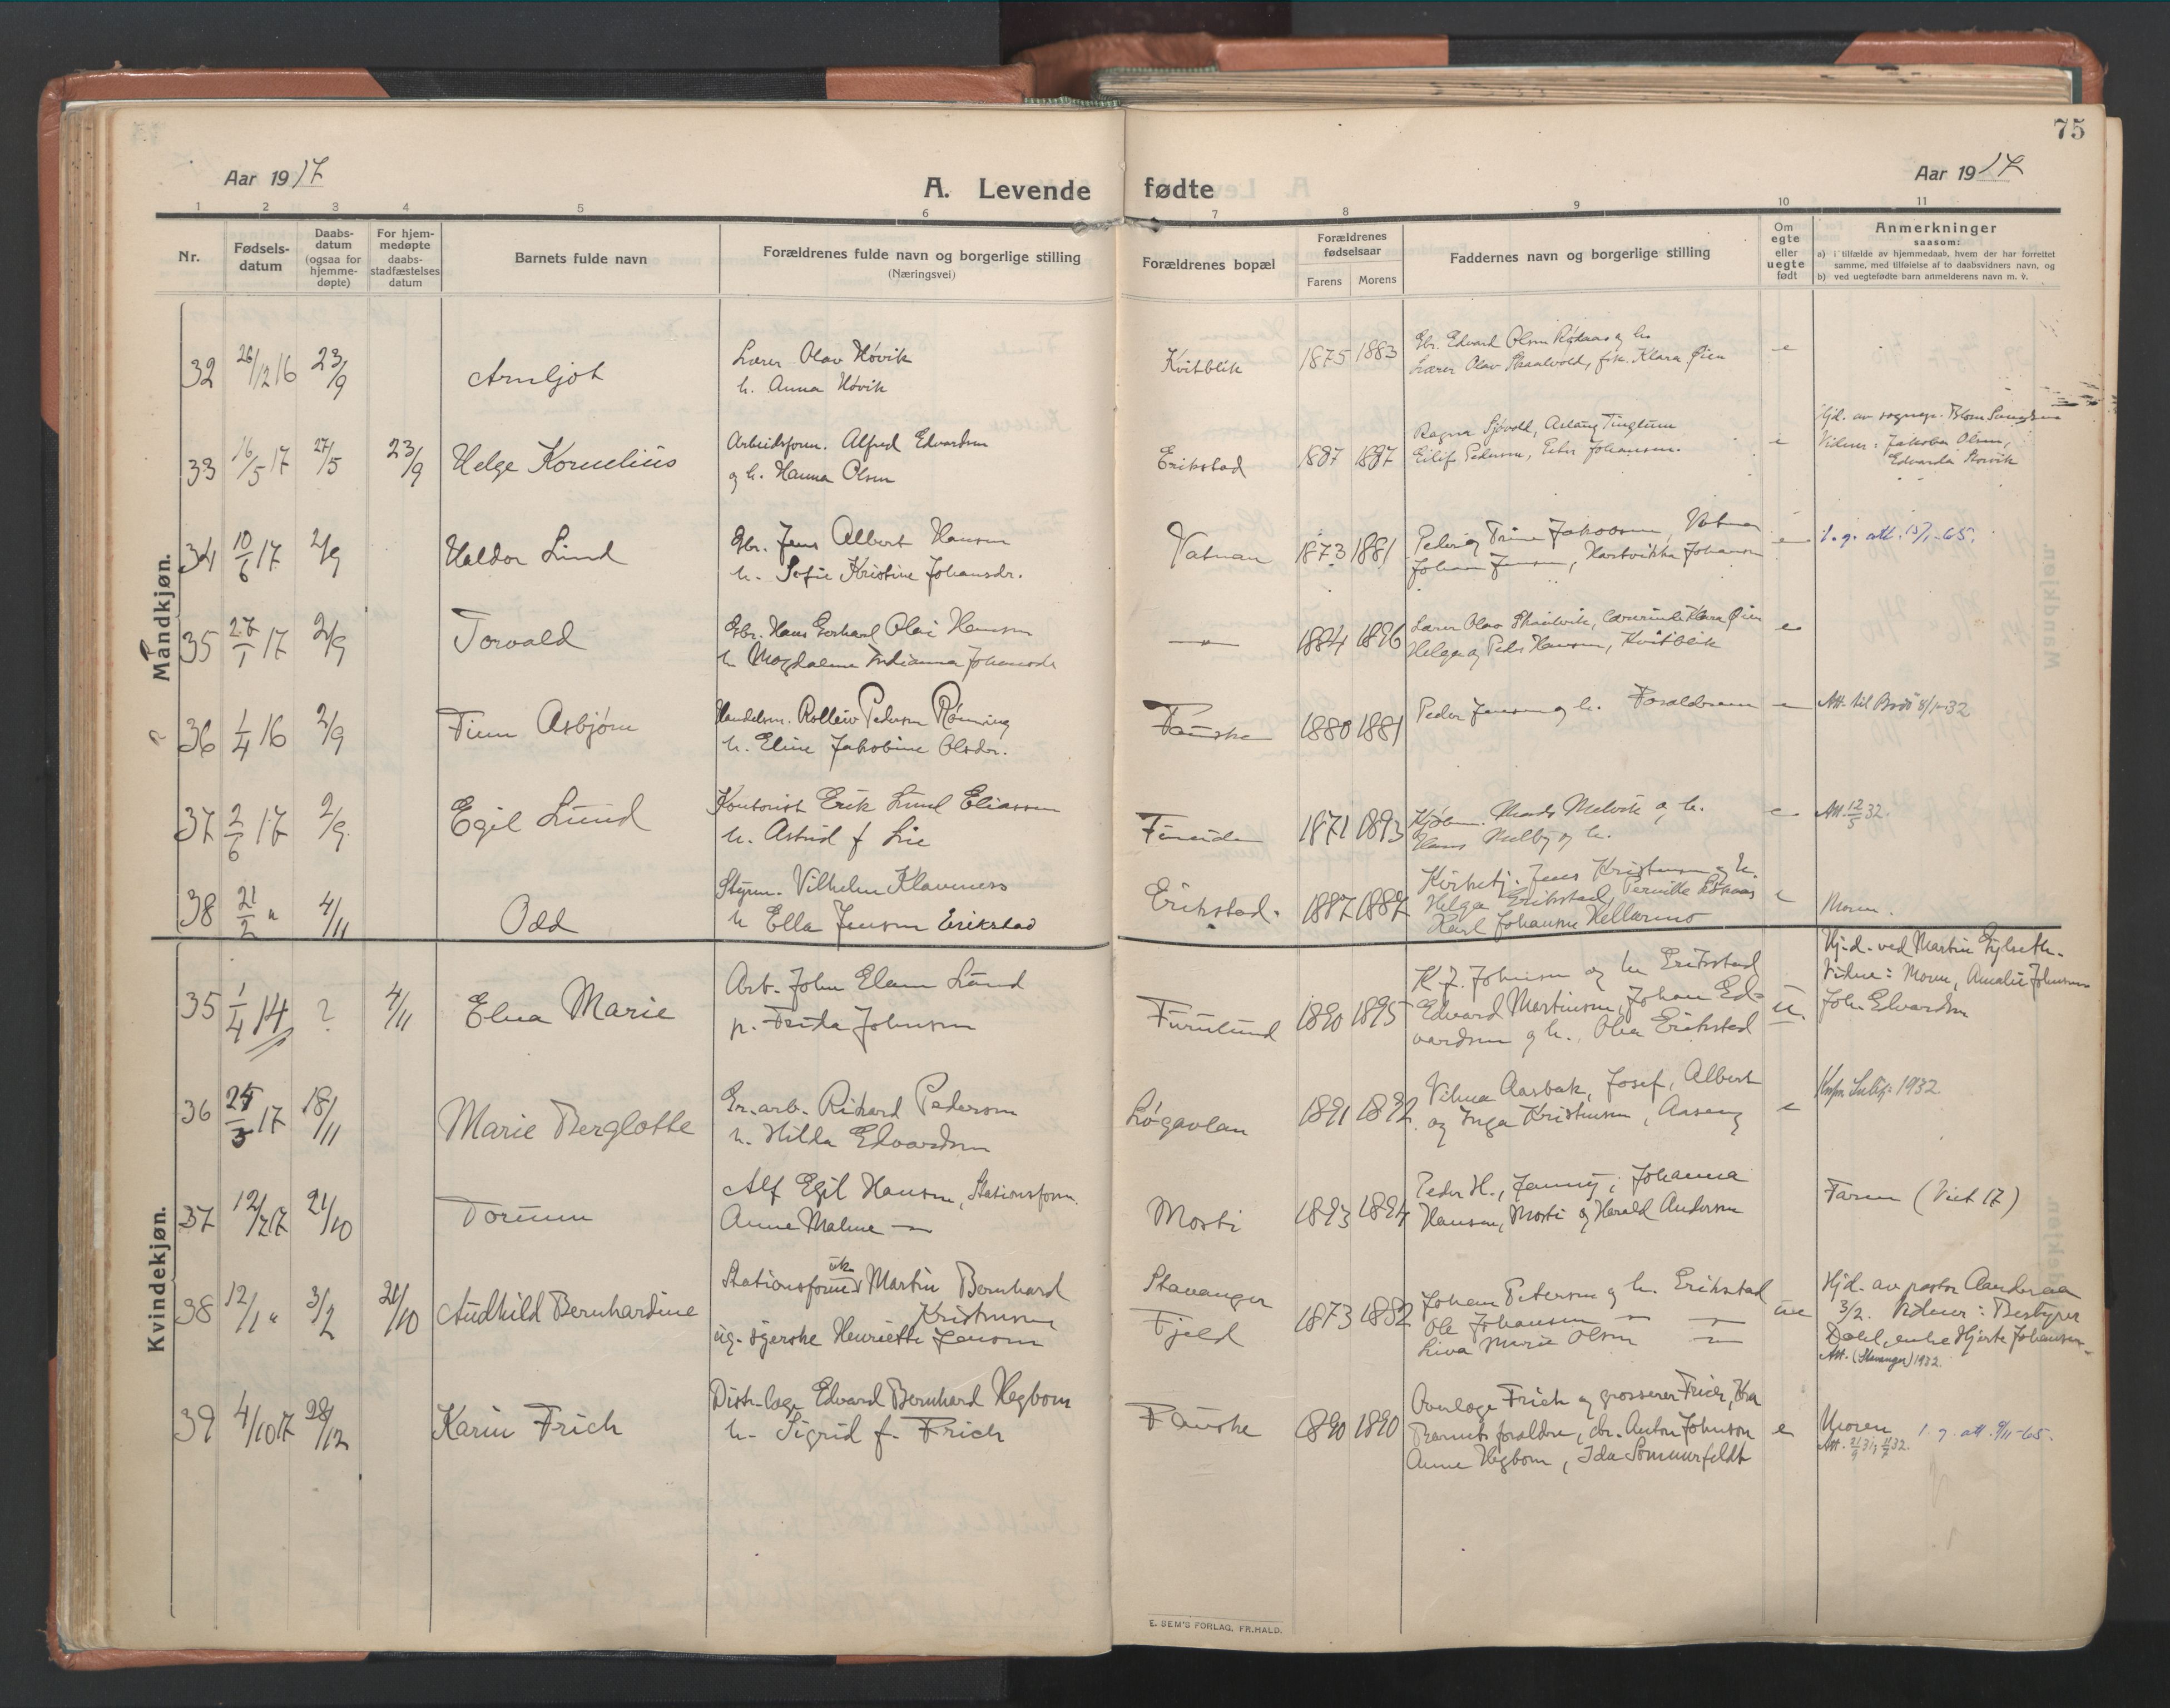 75
Aar 1917
A. Levende fødte
Aar 1917
1 2 3 4 5 6 7 8 9 10 11
Nr.
Fødsels-
datum
Daabs-
datum
(ogsaa for
hjemme-
døpte)
For hjem-
medøpte
daabs-
stadfæstelses
datum
Barnets fulde navn
Forældrenes fulde navn og borgerlige stilling
(Næringsvei)
Forældrenes bopæl
Forældrenes
fødselsaar
Farens Morens
Faddernes navn og borgerlige stilling
Om
egte
eller
uegte
født
Anmerkninger
saasom:
a) i tilfælde av hjemmedaab, hvem der har forrettet
samme, med tilføielse af to daabsvidners navn, og
b) ved uegtefødte barn anmelderens navn m. v.
Mandkjøn.
32 26/12 16 23/9 Arnljot
Lærer Olav Høvik
h. Anna Høvik
Kvitblik 1875 1883
Gbr. Edvard Olsen Rødaas og h.
Lærer Olav Skaalvold, frk. Klara Øien
e
33 16/5 17 27/5 23/9 Helge Kornelius
Arbeidsform. Alfred Edvardsen
og h. Hanna Olsen
Erikstad 1887 1887
Ragna Sjøvold, Aslaug Tinglum
Eilif Pedersen, Peter Johansen.
e
Hjd. av sognepr. Blom
Vidner: Jakoba Olsen,
Edvarda Storvik
34 10/6 17 2/9 Haldor Lund
Gbr. Jens Albert Hansen
h. Sofie Kristine Johansdr.
Vatnan 1873 1881
Peder og Trine Jakobsen, Vatnan
Johan Jensen, Hartvikka Johansen
e
l. g. att. 15/1-65.
35 27/1 17 2/9 Torvald
Gbr. Hans Gerhard Olai Hansen
h. Magdalena Indianna Johansdr
—"— 1884 1896
Lærer Olav Skaalvik, Lærerinde Klara Øien
Helga og Peder Hansen, Kvitblik
e
36 1/4 16 2/9 Finn Asbjørn
Handelsm. Rolleiv Pedersen Rønning
h. Eline Jakobine Olsdr.
Fauske 1880 1881
Peder Jensen og h. Forældrene
e
Att. til Bodø 8/1-32
37 2/6 17 2/9 Egil Lund
Kontorist Erik Lund Eliassen
h. Astrid f Lie
Finneid 1871 1893
Kjøbm. Mads Melvik og h.
Hans Melby og h.
e
Att. 12/5 32.
38 21/2 " 4/11 Odd
Styrm. Vilhelm Klaveness
h Ella Jensen Erikstad
Erikstad. 1887 1887
Kirketj. Jens Kristensen og h.
Helga Erikstad, Pernille
Karl Johansen Hellarmo
e
Moren.
Kvindekjøn.
35 1/4 14 ? 4/11 Elna Marie
Arb. John Elam Lund
p. Frida Johnsen
Furulund 1890 1895
K. J. Johnsen og h. Erikstad
Edvard Martinsen, Johan Ed-
vardsen og h. Olea Erikstad
u.
Hj.d. ved Martin
Vidne: Moren, Amalie Johnsen
John Edvardsen
36 24/3 17 18/11 Marie Berglotte
Gr.arb. Rikard Pedersen
h. Hilda Edvardsen
Løgavlan 1891 1892
Vilma Aasbak, Josef, Albert
og Inga Kristensen, Aaseng
e
1932
37 12/2 17 21/10 Torunn
Alf Egil Hansen, Stationsform.
Anne Malene —"—
Mosti 1893 1894
Peder H., Jenny, Johanna
Hansen, Mosti og Harald Andersen
Faren (Viet 17)
38 12/1 " 3/2 21/10 Audhild Bernhardine
Stationsform. Martin Bernhard
Kristensen
ug. syerske Henriette Jensen
Stavanger
Fjeld
1873 1882
Johan Petersen og h. Erikstad
Ole Johansen —"— —"—
Liva Marie Olsen —"—
ue
Hjd. av pastor Aanderaa
3/2. Vidner: Bestyrer
Dahl, enke Hjerte Johansen
Att. (Stavanger) 1932.
39 4/10 17 28/12 Karin Frich
Distr.læge Edvard Bernhard Hegbom
h. Sigrid f. Frich
Fauske 1890 1890
Overlæge Frich og grosserer Frich, Kra
Barnets forældre, dr. Anton Johnson
Anne Hegbom, Ida Sommerfeldt
e
Moren 1. g. att. 9/11-65.
Att. 21/9 31, 11/7 32.
E. SEM'S FORLAG, FR.HALD.